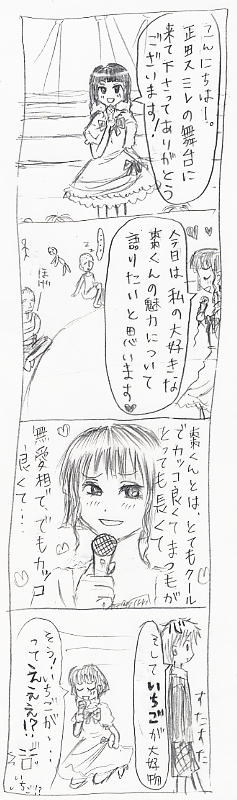 こんにちはー。
正田スミレの舞台に
来て下さってありがとう
ございます！
・・・
ほげー
今日は私の大好きな
棗くんの魅力について
語りたいと思います
棗くんとは、とてもクール
でカッコ良くてまつ毛が
とっても長くて
無愛想で、でもカッコ
良くて・・・
すたすた
そしていちごが大好物
そう！いちごが・・・
ってえええ!?